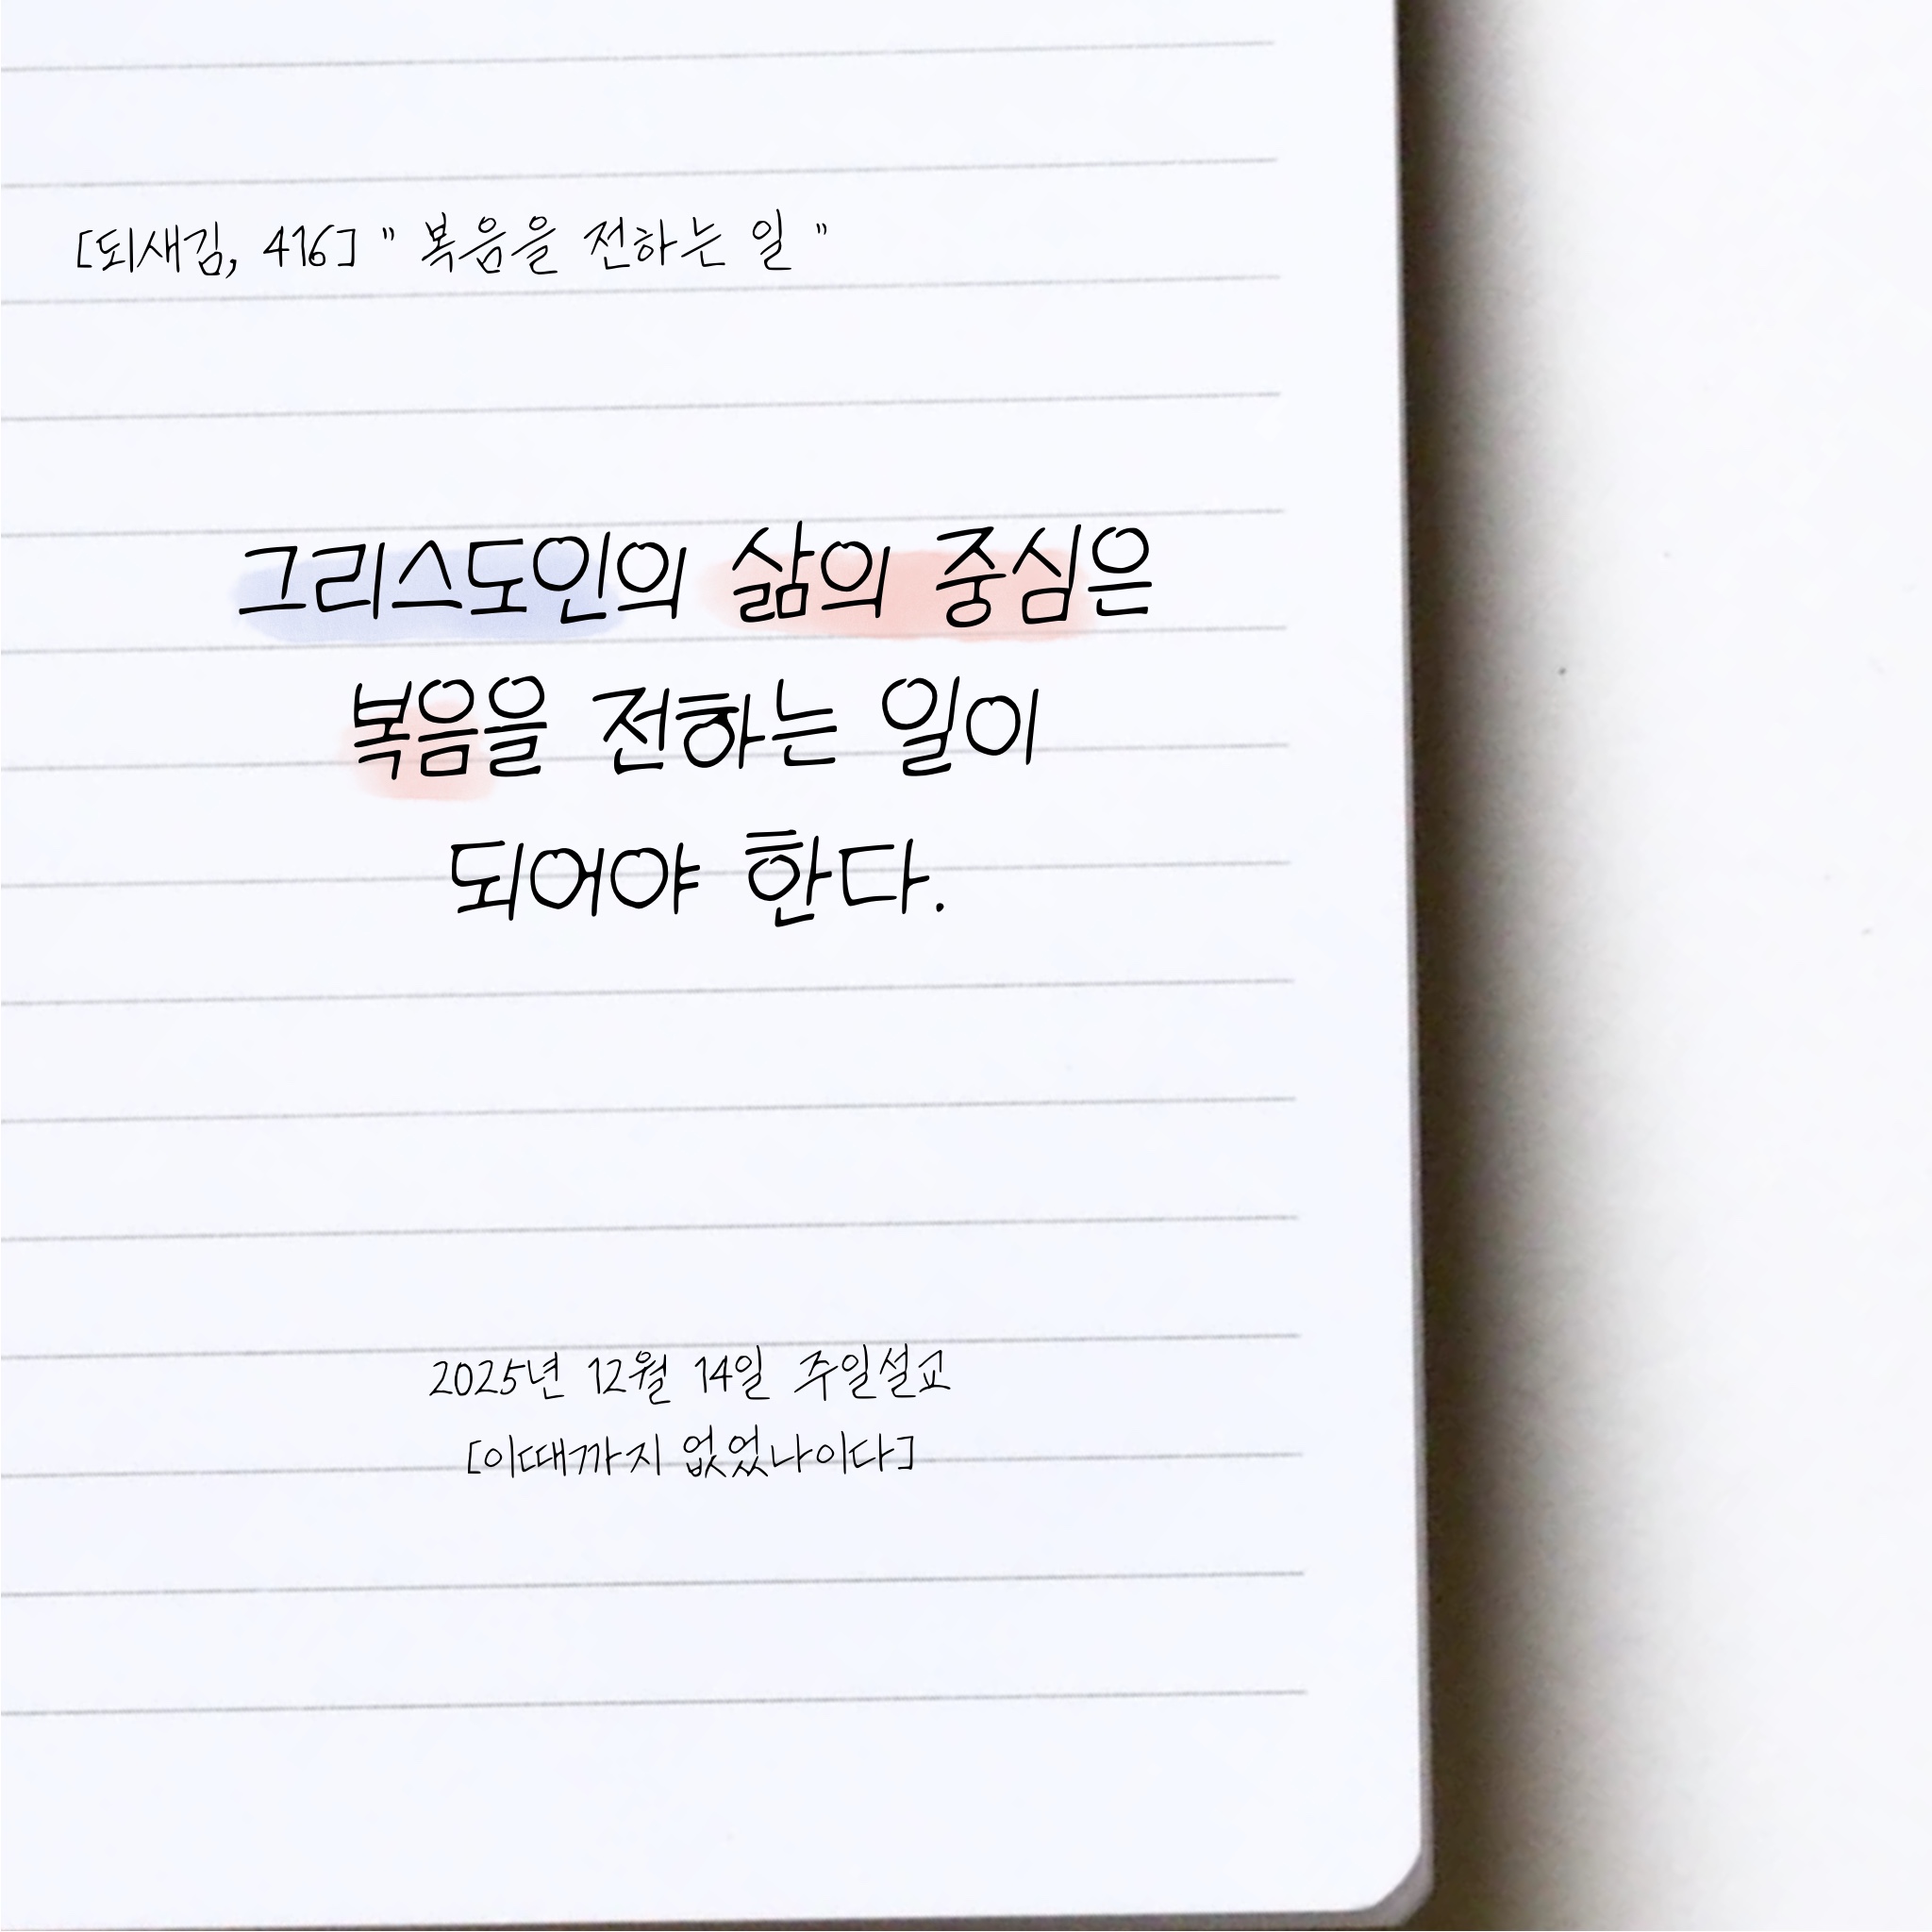 [되새김, 416] " 복음을 전하는 일 "
그리스도인의 삶의 중심은
복음을 전하는 일이
되어야 한다.
2025년 12월 14일 주일설교
[이때까지 없었나이다]